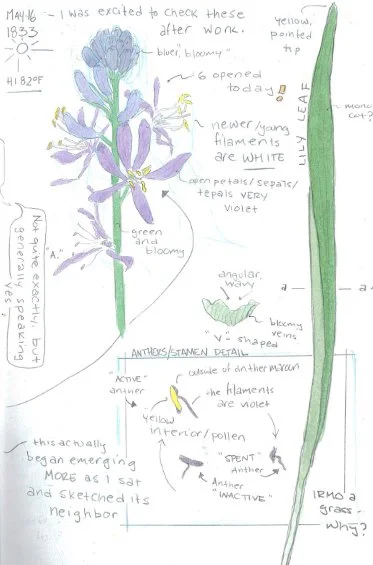 MAY 16
1833
HI 82°F
- I was excited to check these
after work.
yellow,
pointed
tip
blue, "bloomy"
6 opened
today!
newer/young
filaments
are WHITE
open petals/sepals/
tepals VERY
violet
LILY LEAF
mono
cot?
green
and
bloomy
"A."
Not quite exactly, but
generally speaking
yes
angular,
wavy
a
a
bloomy
veins
"V" shaped
ANTHERS/STAMEN DETAIL
"ACTIVE"
anther
outside of anther maroon
the filaments
are violet
yellow
interior/pollen
"SPENT"
Anther
Anther
"INACTIVE"
this actually
began emerging
MORE as I sat
and sketched its
neighbor
IRMO a
grass-
Why?